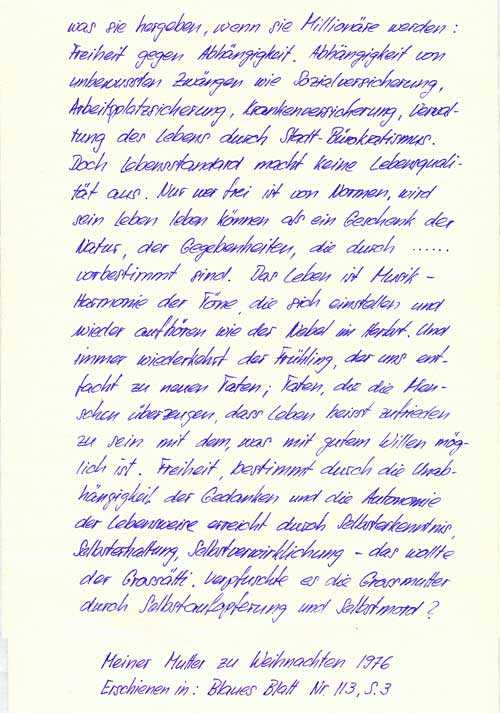 was sie hergeben, wenn sie Millionäre werden:
Freiheit gegen Abhängigkeit. Abhängigkeit von
unbewussten Zwängen wie Sozialversicherung,
Arbeitsplatzsicherung, Krankenversicherung, Verwal-
tung des Lebens durch Stadt-Bürokratismus.
Doch Lebensstandard macht keine Lebensquali-
tät aus. Nur wer frei ist von Normen, wird
sein Leben leben können als ein Geschenk der
Natur, der Gegebenheiten, die durch ......
vorbestimmt sind. Das Leben ist Musik -
Harmonie der Töne, die sich einstellen und
wieder aufhören wie der Nebel im Herbst. Und
immer wiederkehrt der Frühling, der uns ent-
facht zu neuen Taten; Taten, die die Men-
schen überzeugen, dass Leben heisst zufrieden
zu sein mit dem, was mit gutem Willen mög-
lich ist. Freiheit, bestimmt durch die Unab-
hängigkeit der Gedanken und die Autonomie
der Lebensweise erreicht durch Selbsterkenntnis,
Selbsterhaltung, Selbstverwirklichung - das wollte
der Grossätti. Verpfuschte es die Grossmutter
durch Selbstaufopferung und Selbstmord?
Meiner Mutter zu Weihnachten 1976
Erschienen in: Blaues Blatt Nr. 113, S. 3